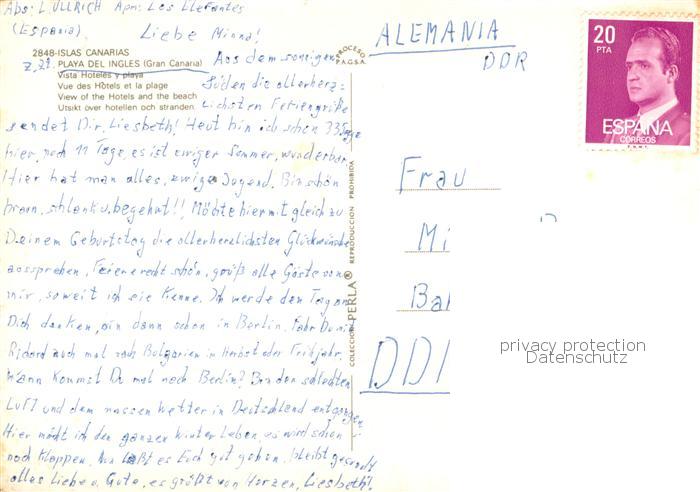 Abs: L. ULLRICH Apm: Los Elefantes
(Espania).
Liebe Minna!
2848-ISLAS CANARIAS
PLAYA DEL INGLES (Gran Canaria)
Vista Hoteles y playa
Vue des Hotels et la plage
View of the Hotels and the beach
Utsikt över hotellen och stranden
Z,22.
Aus dem sonnigen
Süden die allerherz=
lichsten Feriengrüße
sendet Dir, Liesbeth! Heut bin ich schon 33 Tage
hier, noch 11 Tage, es ist ewiger Sommer, wunderbar.
Hier hat man alles, ewige Jugend. Bin schön
braun, schlank u. begehrt!! Möchte hiermit gleich zu
Deinem Geburtstag die allerherzlichsten Glückwünsche
aussprechen, Feiere recht schön, grüß alle Gäste von
mir, soweit ich sie kenne. Ich werde den Tag an
Dich denken, bin dann schon in Berlin. Fahr Du mit
Richard auch mal nach Bulgarien im Herbst oder Frühjahr.
Wann kommst Du mal nach Berlin? Bin den schlechten
Luft und dem nassen Wetter in Deutschland entgangen
Hier möcht ich den ganzen Winter Leben, es wird schon
noch klappen. Nun laßt es Euch gut gehen, bleibt gesund
alles Liebe u. Gute, es grüßt von Herzen, Liesbeth!
PROCESO
P.A.G.S.A.
COLECCION PERLA® REPRODUCCION PROHIBIDA
ALEMANIA
DDR
20
PTA
ESPAÑA
CORREOS
Frau
Mi
Bal
DDI
privacy protection
Datenschutz